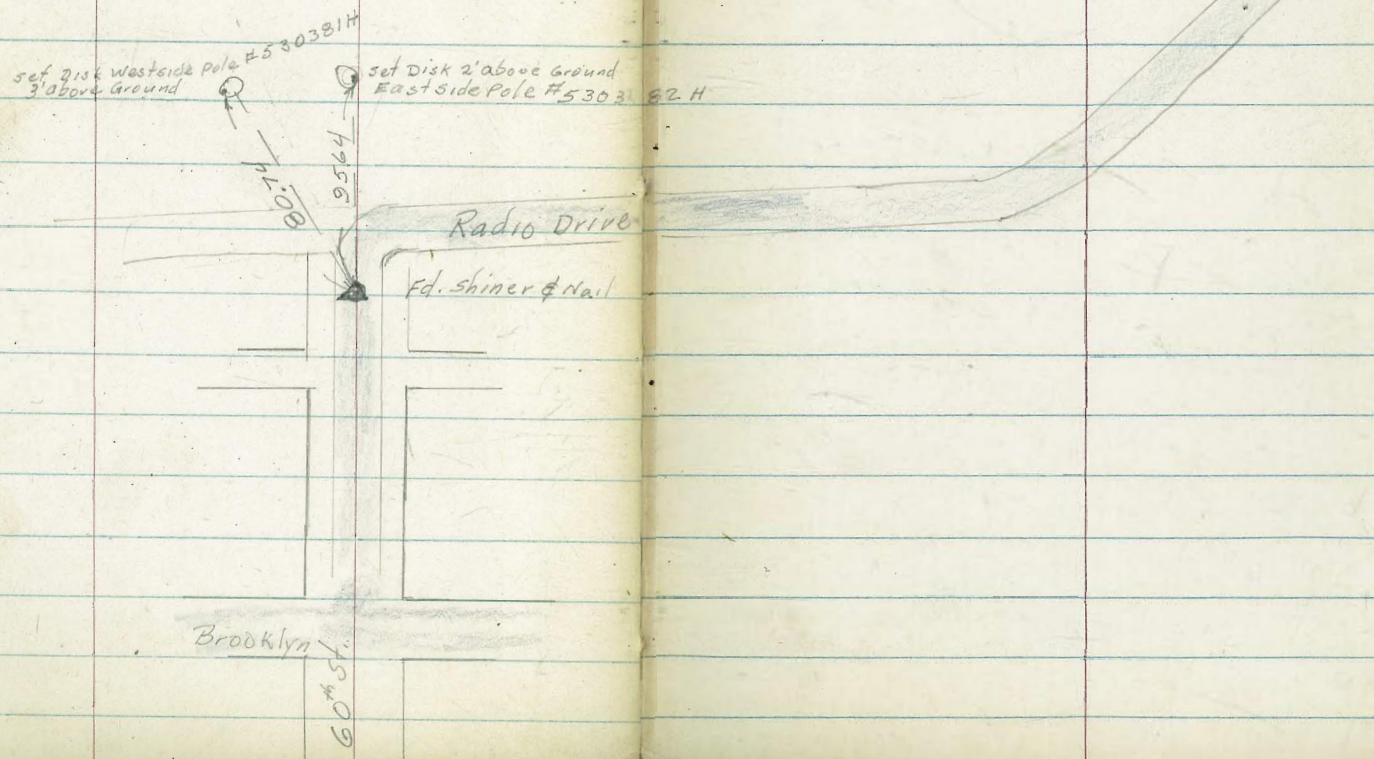 set Disk Westside Pole #530381H
3' above Ground
set Disk 2' above Ground
East side Pole #530382H
80.74
9564
Radio Drive
Fd. Shiner & Nail
Brooklyn
60th St.